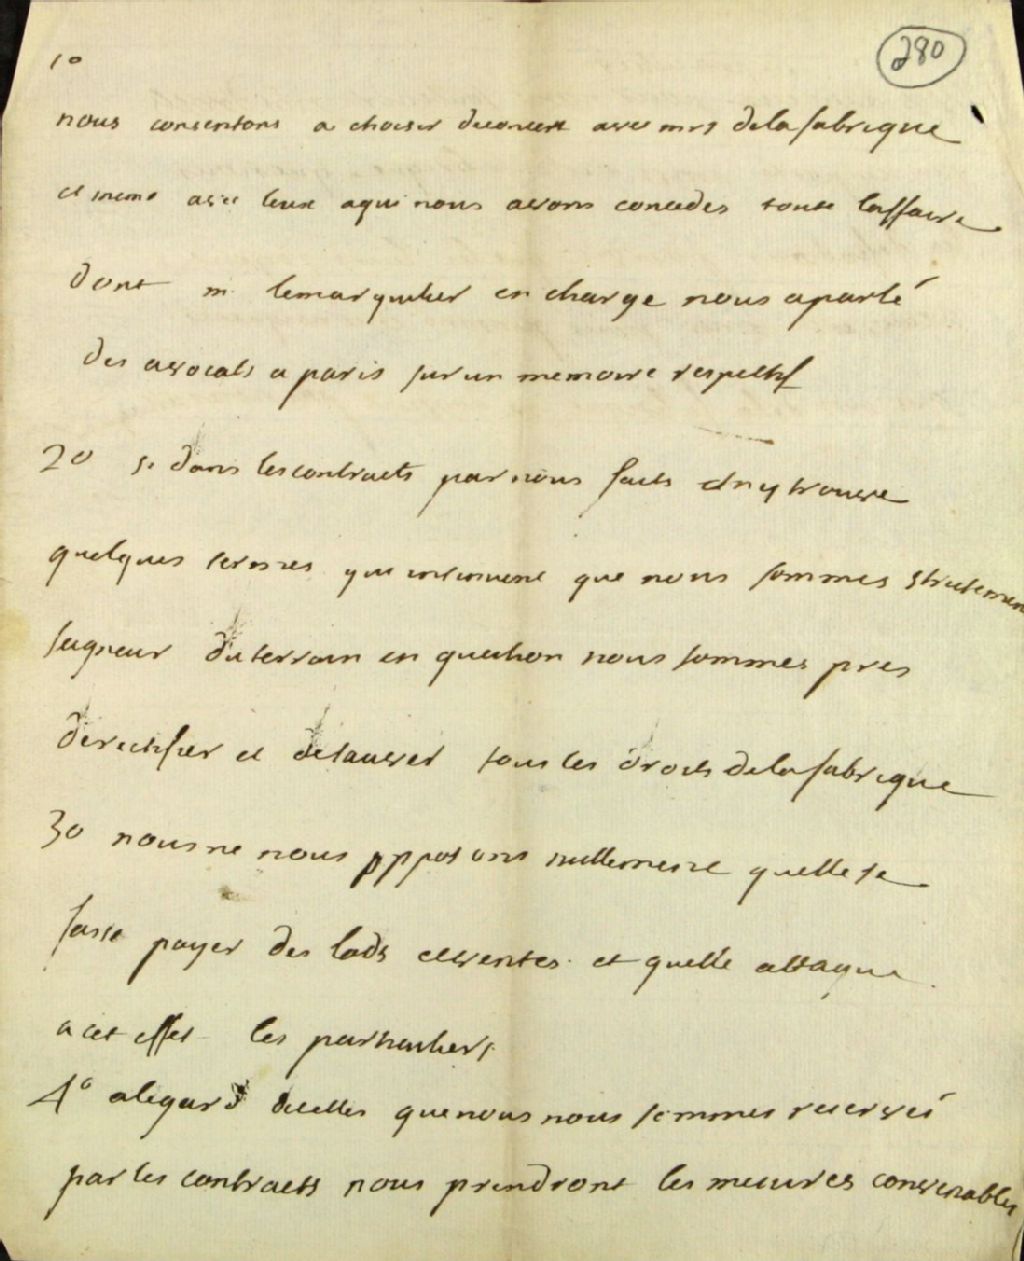 280
1o
nous consentons a choisir deconcert avec mrs dela fabrique
et meme avec ceux aqui nous avons concedés toute laffaire
dont m lemarguilier en charge nous aparlé
des avocats a paris sur un memoire respectif
2o si dans lescontracts par nous faits ilny trouve
quelques termes qui insinuent que nous sommes strictement
seigneur du terrain en question nous sommes pres
derectifier et desauver tous les droits dela fabrique
3o nous ne nous opposons nullement quelle se
fasse payer des lods etventes et quelle attaque
a cet effet les particuliers
4o alegard decelles que nous nous sommes reservé
par les contracts nous prendront les mesures convenables